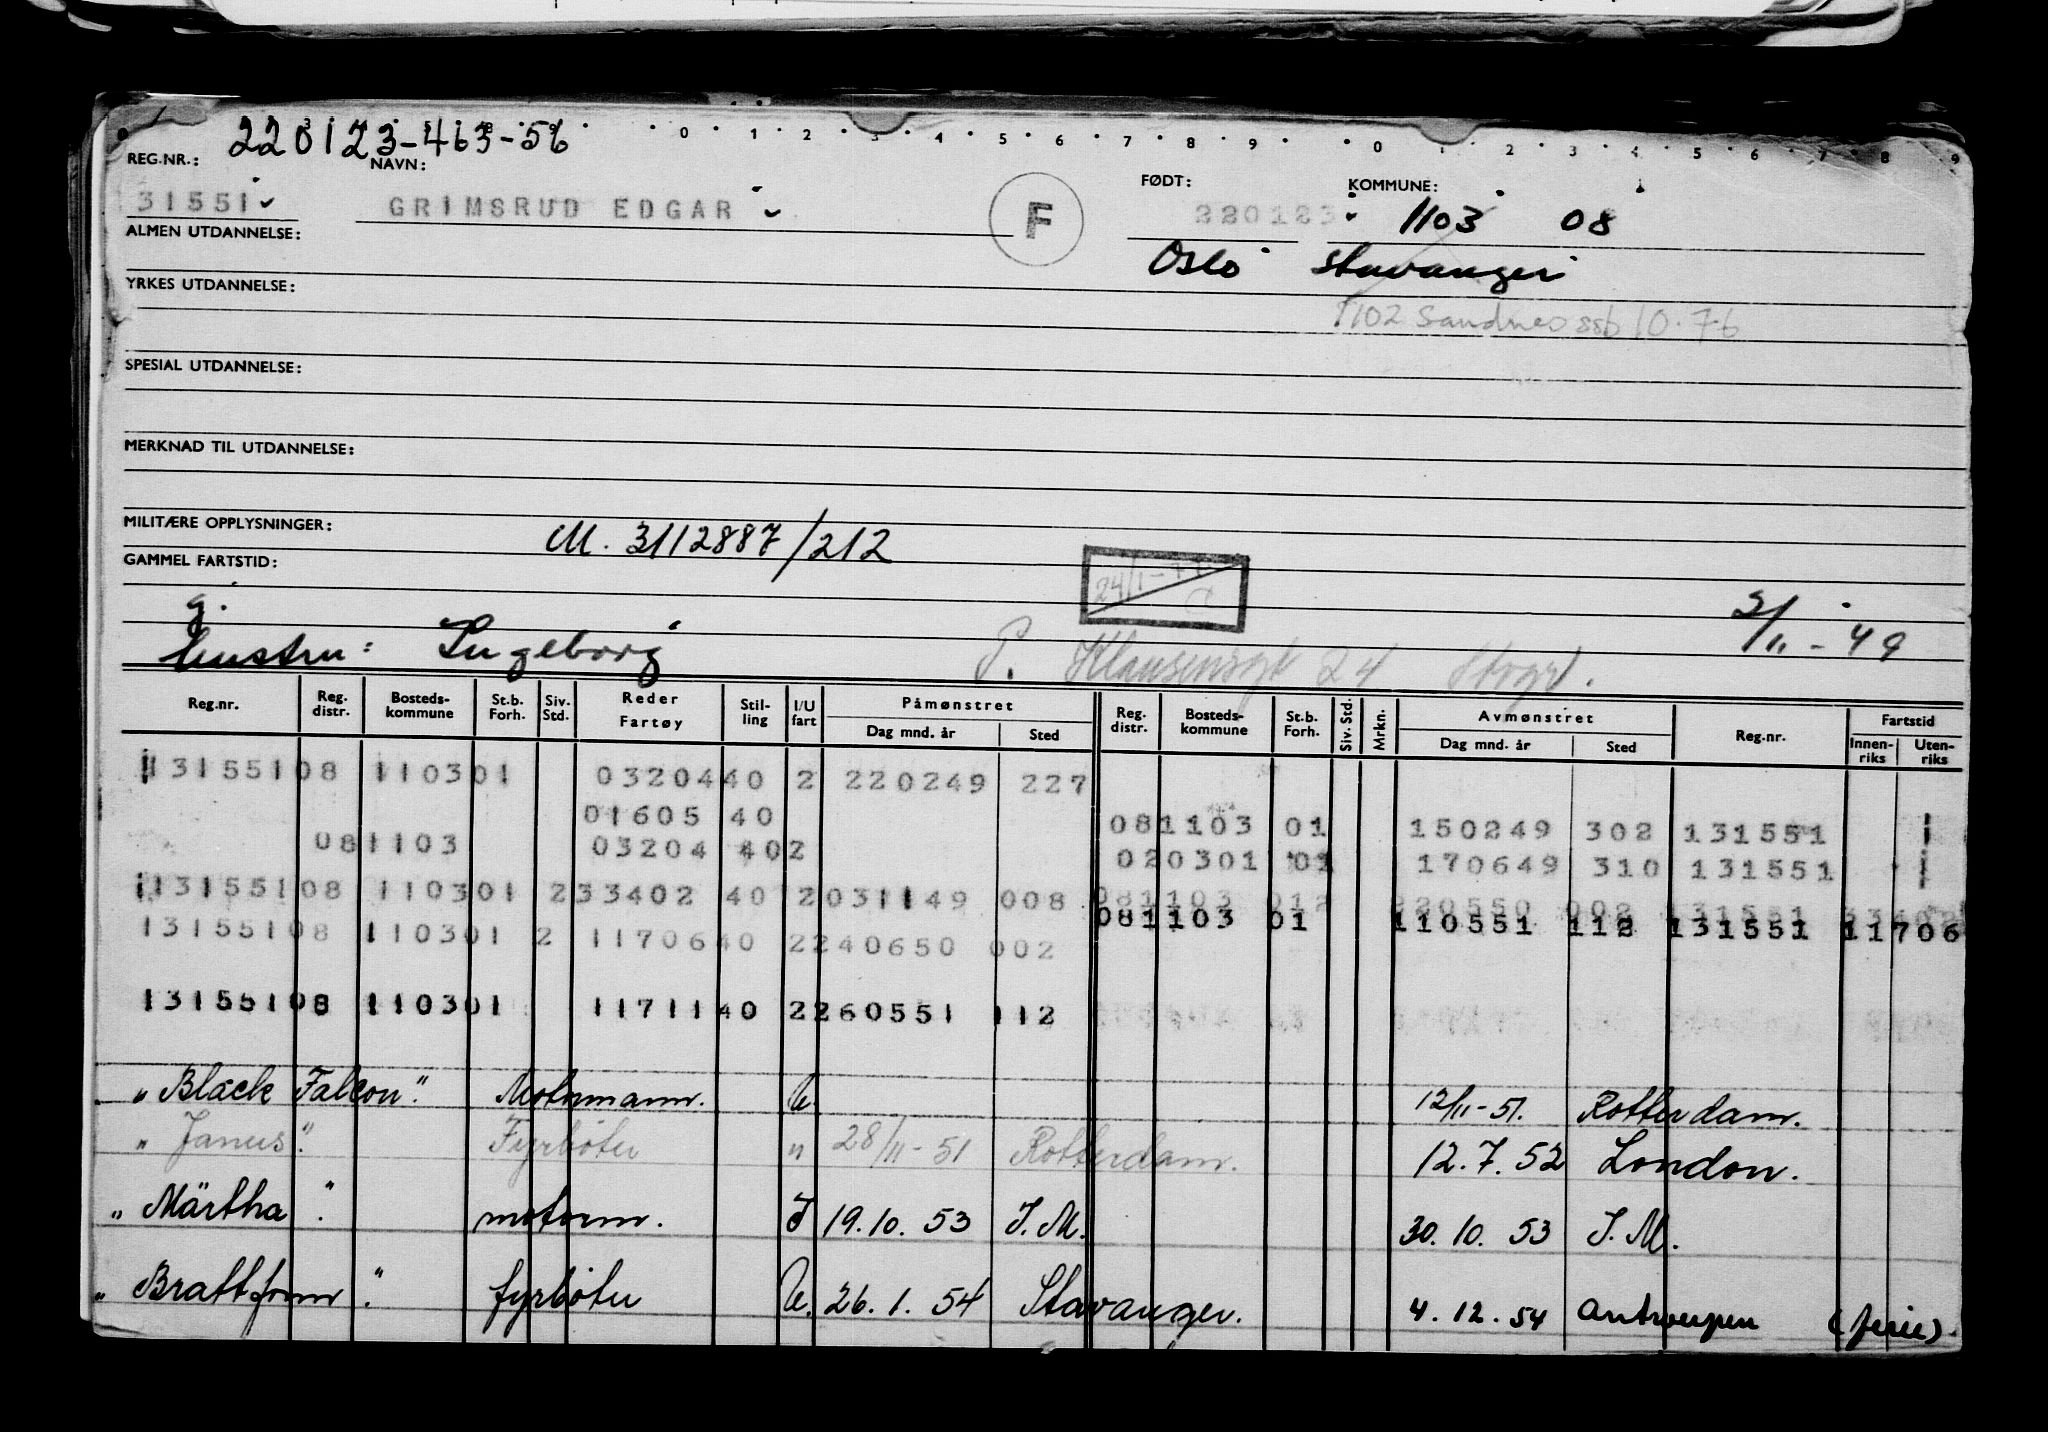 220123-463-56
0 1 2 3 4 5 6 7 8 9 0 1 2 3 4 5 6 7 8 9
REG.NR.: NAVN: FØDT: KOMMUNE:
31551 GRIMSRUD EDGAR F 220123 1103 08
ALMEN UTDANNELSE: Oslo Stavanger
YRKES UTDANNELSE: 1102 Sandnes ssb 10.76
SPESIAL UTDANNELSE:
MERKNAD TIL UTDANNELSE:
MILITÆRE OPPLYSNINGER: M. 3112887/212
GAMMEL FARTSTID: 24/1-77
g. 2/11-49
Hustru: Ingeborg P. Klausensgt 24 Stvgr.
Reg.nr. Reg. distr. Bosteds-kommune St.b. Forh. Siv. Std. Reder Fartøy Stil-ling I/U fart Påmønstret Dag mnd. år Sted Reg. distr. Bosteds-kommune St.b. Forh. Siv. Std. Mrkn. Avmønstret Dag mnd. år Sted Reg.nr. Fartstid Innen-riks Uten-riks
13155108 110301 0320440 2 220249 227
01605 40 081103 01 150249 302 131551
081103 03204 402 020301 01 170649 310 131551
13155108 110301 233402 40 2031149 008 081103 012 220550 002 131551 33402
13155108 110301 2 1170640 2240650 002 081103 01 110551 112 131551 11706
13155108 110301 1171140 2260551 112
„Black Falcon". Motormann. U. 12/11-51. Rotterdam.
„Janus". Fyrbøter „ 28/11-51 Rotterdam. 12.7.52 London.
„Märtha". motorm. I 19.10.53 I.M. 30.10.53 I.M.
„Brattfonn". fyrbøter U. 26.1.54 Stavanger. 4.12.54 Antwerpen (ferie).